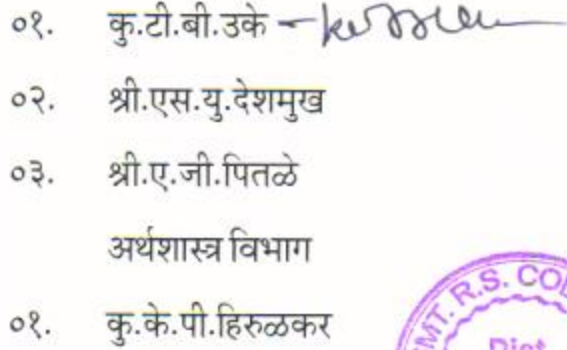 ०१. कु.टी.बी.उके –
०२. श्री.एस.यु.देशमुख
०३. श्री.ए.जी.पितळे
अर्थशास्त्र विभाग
०१. कु.के.पी.हिरुळकर
R.S. CO
Dist